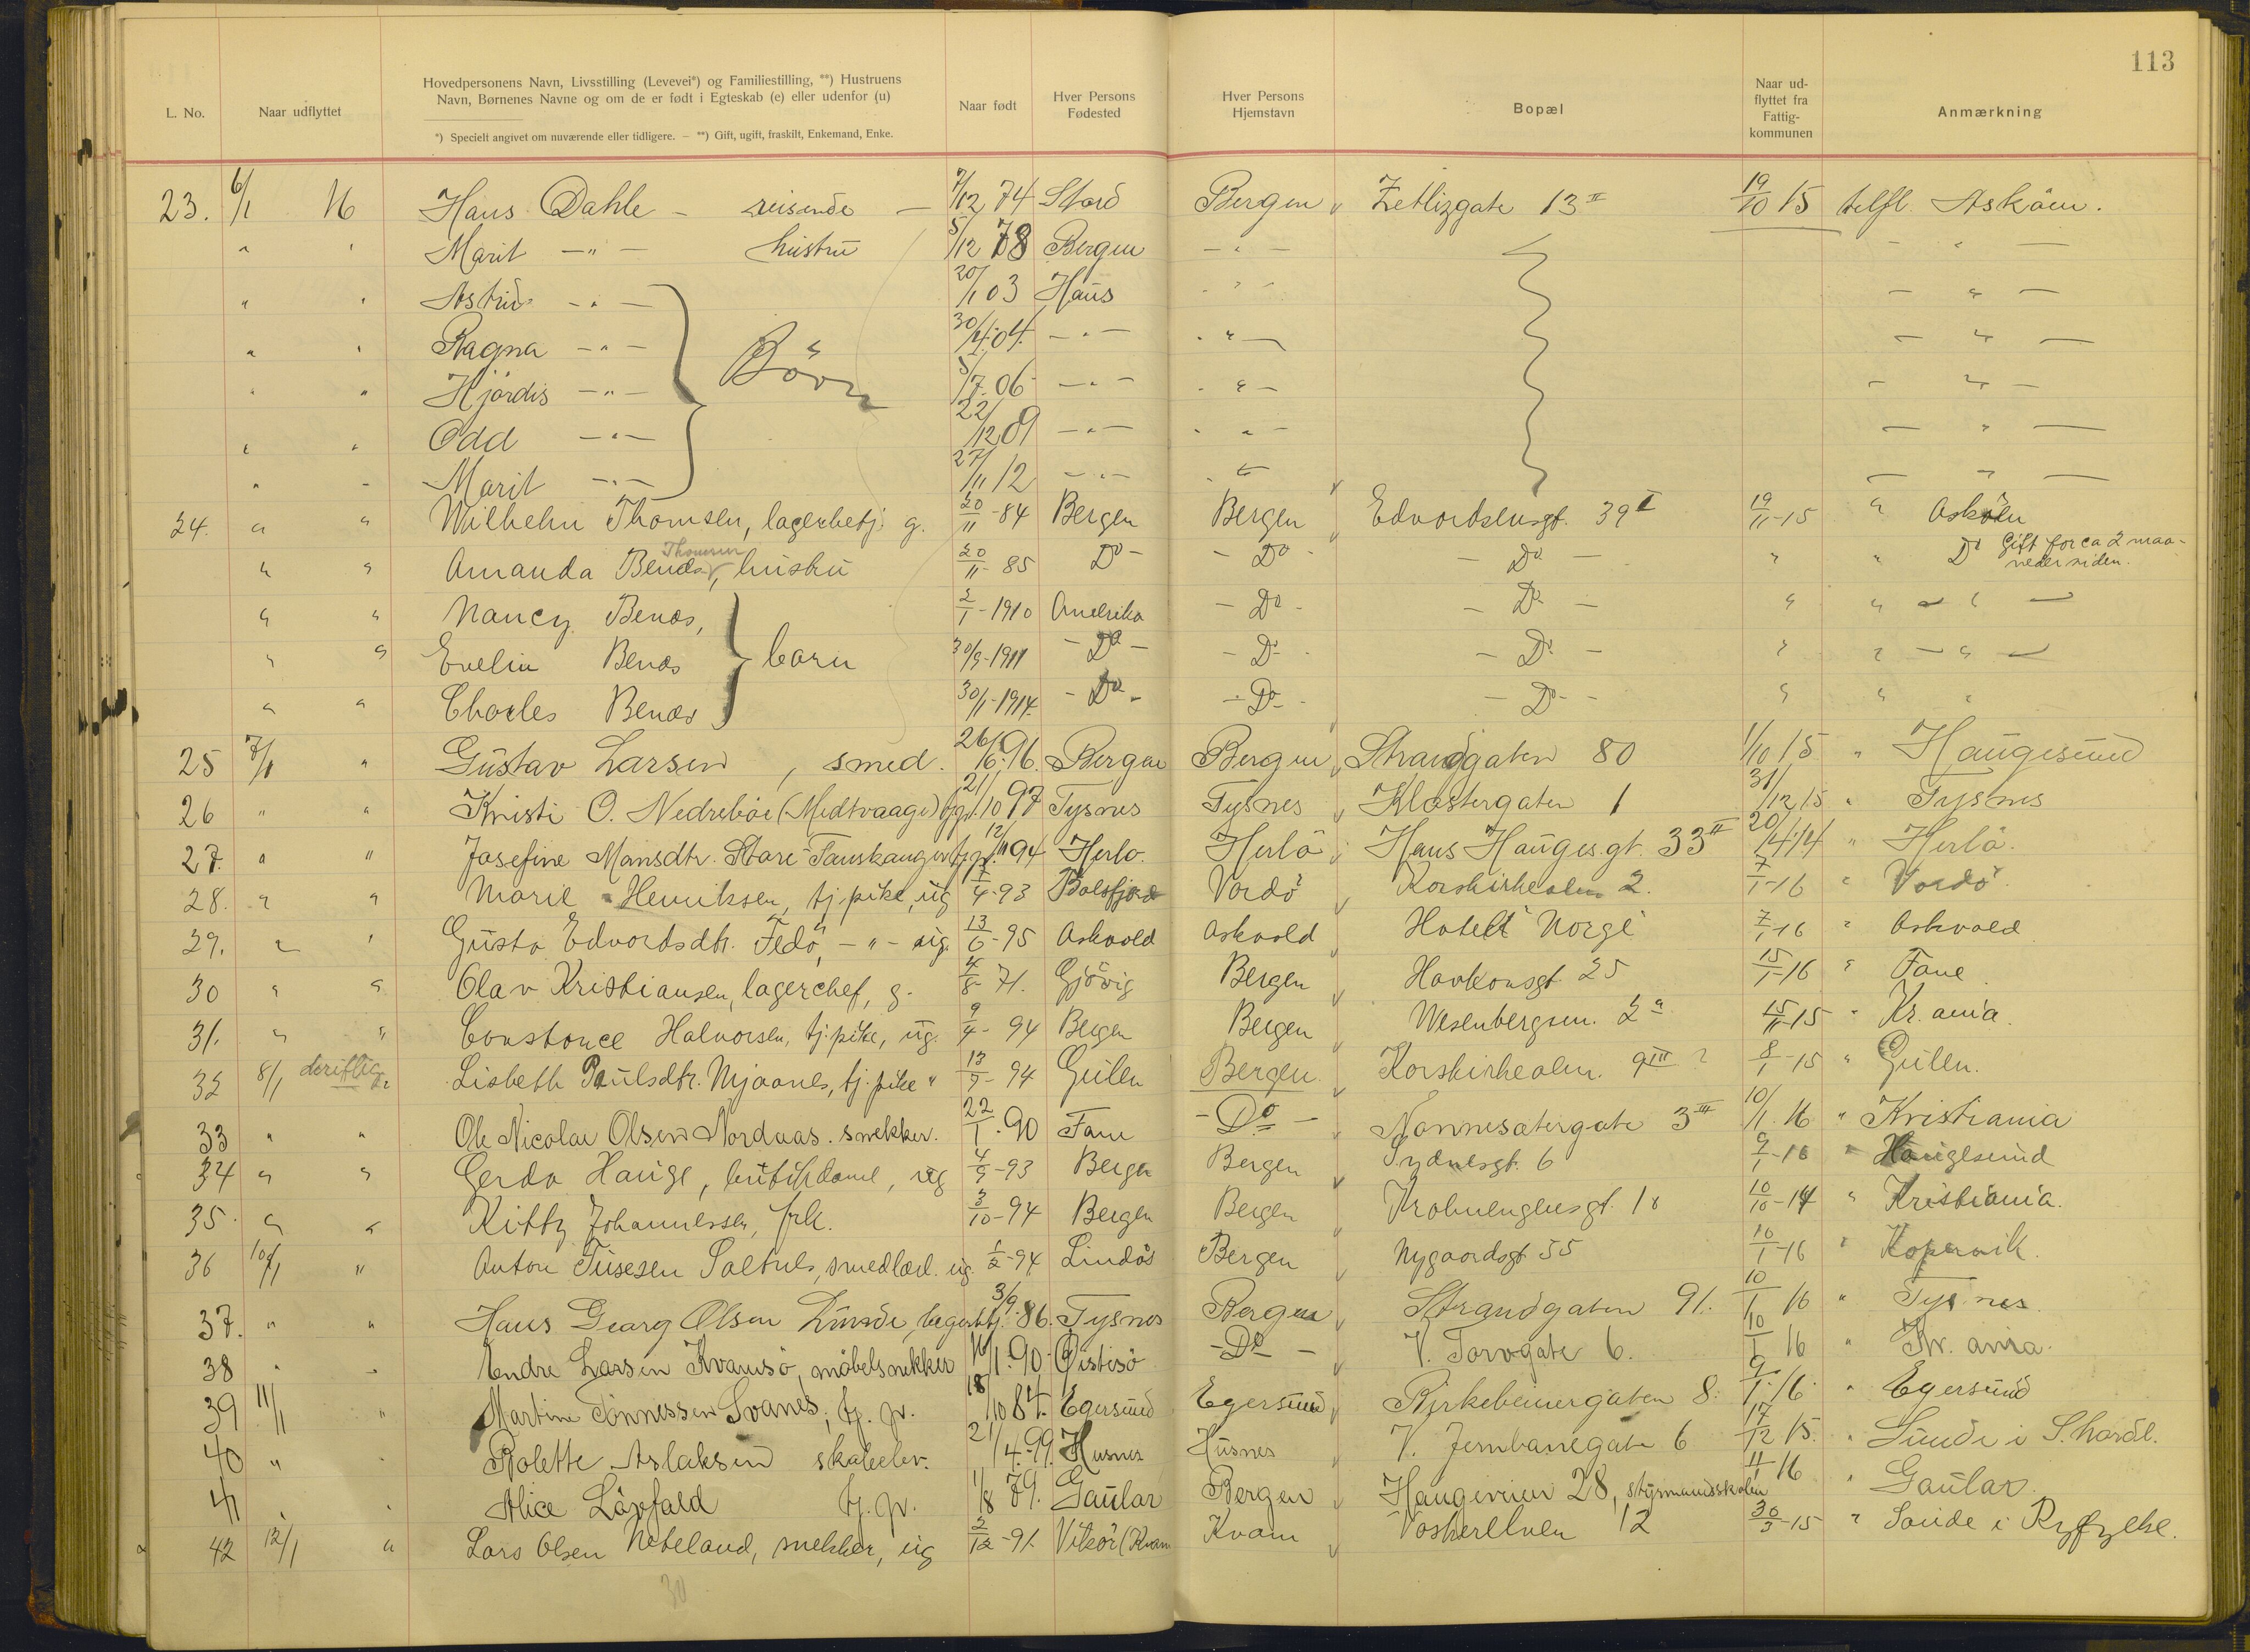 113
L. No.
Naar udflyttet
Hovedpersonens Navn, Livsstilling (Levevei*) og Familiestilling, **) Hustruens
Navn, Børnenes Navne og om de er født i Egteskab (e) eller udenfor (u)
*) Specielt angivet om nuværende eller tidligere. — **) Gift, ugift, fraskilt, Enkemand, Enke.
Naar født
Hver Persons
Fødested
Hver Persons
Hjemstavn
Bopæl
Naar ud-
flyttet fra
Fattig-
kommunen
Anmærkning
23. 6/1 16 Hans Dahle - reisende - 7/12 74 Stord Bergen Zetlizgate 13 II 19/10 15 tilfl. Askøen.
" " Marit - " - hustru 5/12 78 Bergen - " - - " -
" " Astrid - " - 20/1 03 Haus - " - - " -
" " Ragna - " - Börn 30/4 04 - " - - " - - " -
" " Hjördis - " - 5/7 06 - " - - " - - " -
" " Odd - " - 22/12 09 - " - - " - - " -
" " Marit - " - 27/11 12 - " - - " - - " -
24. " " Wilhelm Thomsen, lagerbetj. g. 20/11 - 84 Bergen Bergen Edvardsensgt. 39 I 19/11-15 " Askøen
" " Amanda Benæs, Thomsen hustru 20/11 - 85 Do - - Do - - Do - " " Do Gift for ca 2 maa-
neder siden.
" " Nancy Benæs, 2/1 - 1910 Amerika - Do - - Do - " " - " -
" " Evelin Benæs barn 30/9-1911 - Do - - Do - - Do - " " - " -
" " Charles Benæs 30/1-1914 - Do - - Do - - Do - " " "
25 7/1 " Gustav Larsen, smed. 26/6 96. Bergen Bergen Strandgaten 80 1/10 15 " Haugesund
26 " " Kristi O. Nedreböe (Medtvaage) tj.p. 21/10 97 Tysnes Tysnes Klostergaten 1 31/12 15 " Tysnes
27. " " Josefine Monsdtr. Stare-Fauskanger tj.p. 12/11 94 Herlo. Herlö Hans Hauges gt. 33 II 20/4 14 " Herlö.
28. " " Marie Henriksen, tj. pike, ug 7/4-93 Balsfjord Vardö Korskirkealm. 2. 7/1-16 " Vardö.
29. " " Gusta Edvardsdtr. Fedö, - " - ug. 13/6-95 Askvold Askvold Hotell Norge 7/1-16 " Askvold
30 " " Olav Kristiansen, lagerchef, g. 4/8 - 71. Gjövig Bergen Haakonsgt. 25 15/1-16 " Fane
31. " " Constance Halvorsen, tj. pike, ug. 9/4 - 94 Bergen Bergen Wesenbergsm. 2 a 15/11-15 " Kr.ania.
32 8/1 skriftlig Lisbeth Paulsdtr. Mjaanes, tj. pike " 13/9 - 94 Gulen Bergen Korskirkealm. 9 III ? 8/1-15 " Gulen.
33 " " Ole Nicolai Olsen Nordaas. snekker. 22/1 - 90 Fane - Do - Nonnesætergate 3 III 10/1 16 " Kristiania
34 " " Gerda Hauge, butikdame, ug 4/9-93 Bergen Bergen Sydnesgt. 6 9/1-16 " Haugesund
35. " " Kitty Johannessen, frk. 3/10-94 Bergen Bergen Krohnengensgt. 18 10/10-14 " Kristiania.
36 10/1 " Anton Tusesen Soltnes, smedlærl. ug. 1/2-94 Lindås Bergen Nygaardsgt 55 10/1-16 " Kopervik.
37. " " Hans Georg Olsen Lunde, lagerbetj. 3/9 86. Tysnes Bergen Strandgaten 91. 10/1 16 " Tysnes.
38 " " Endre Larsen Kvamsö, möbelsnekker 16/1 90 Öistisö - Do - V. Torvgate 6. 10/1 16 " Kr.ania.
39 11/1 " Martine Tönnessen Svanes, tj. p. 18/10 84. Egersund Egersund Birkebeinergaten 8. 9/1 16 " Egersund
40 " " Rolette Aslaksen skoleelev. 21/4-99. Husnes Husnes V. Jernbanegate 6 17/12 15. " Sunde i S.hordl.
41 " Alice Lövfald tj. p. 1/8 79. Gaular Bergen Haugeveien 28, styrmandsskolen 11/1 16 " Gaular.
42 12/1 " Lars Olsen Neteland, snekker, ug 2/12-91. Vikör (Kvam Kvam Vaskerelven 12 30/3-15 " Sande i Ryfylke.
30